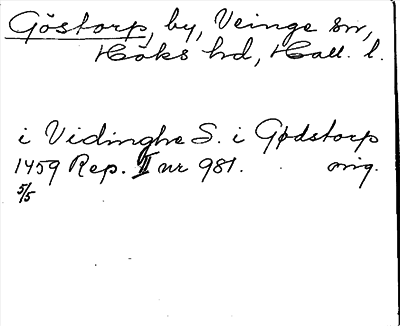 Göstorp, by, Veinge sn,
Höks hd, Hall. l.
i Vidinghe S. i Gødstorp
1459 Rep. II nr 981. orig.
5/5